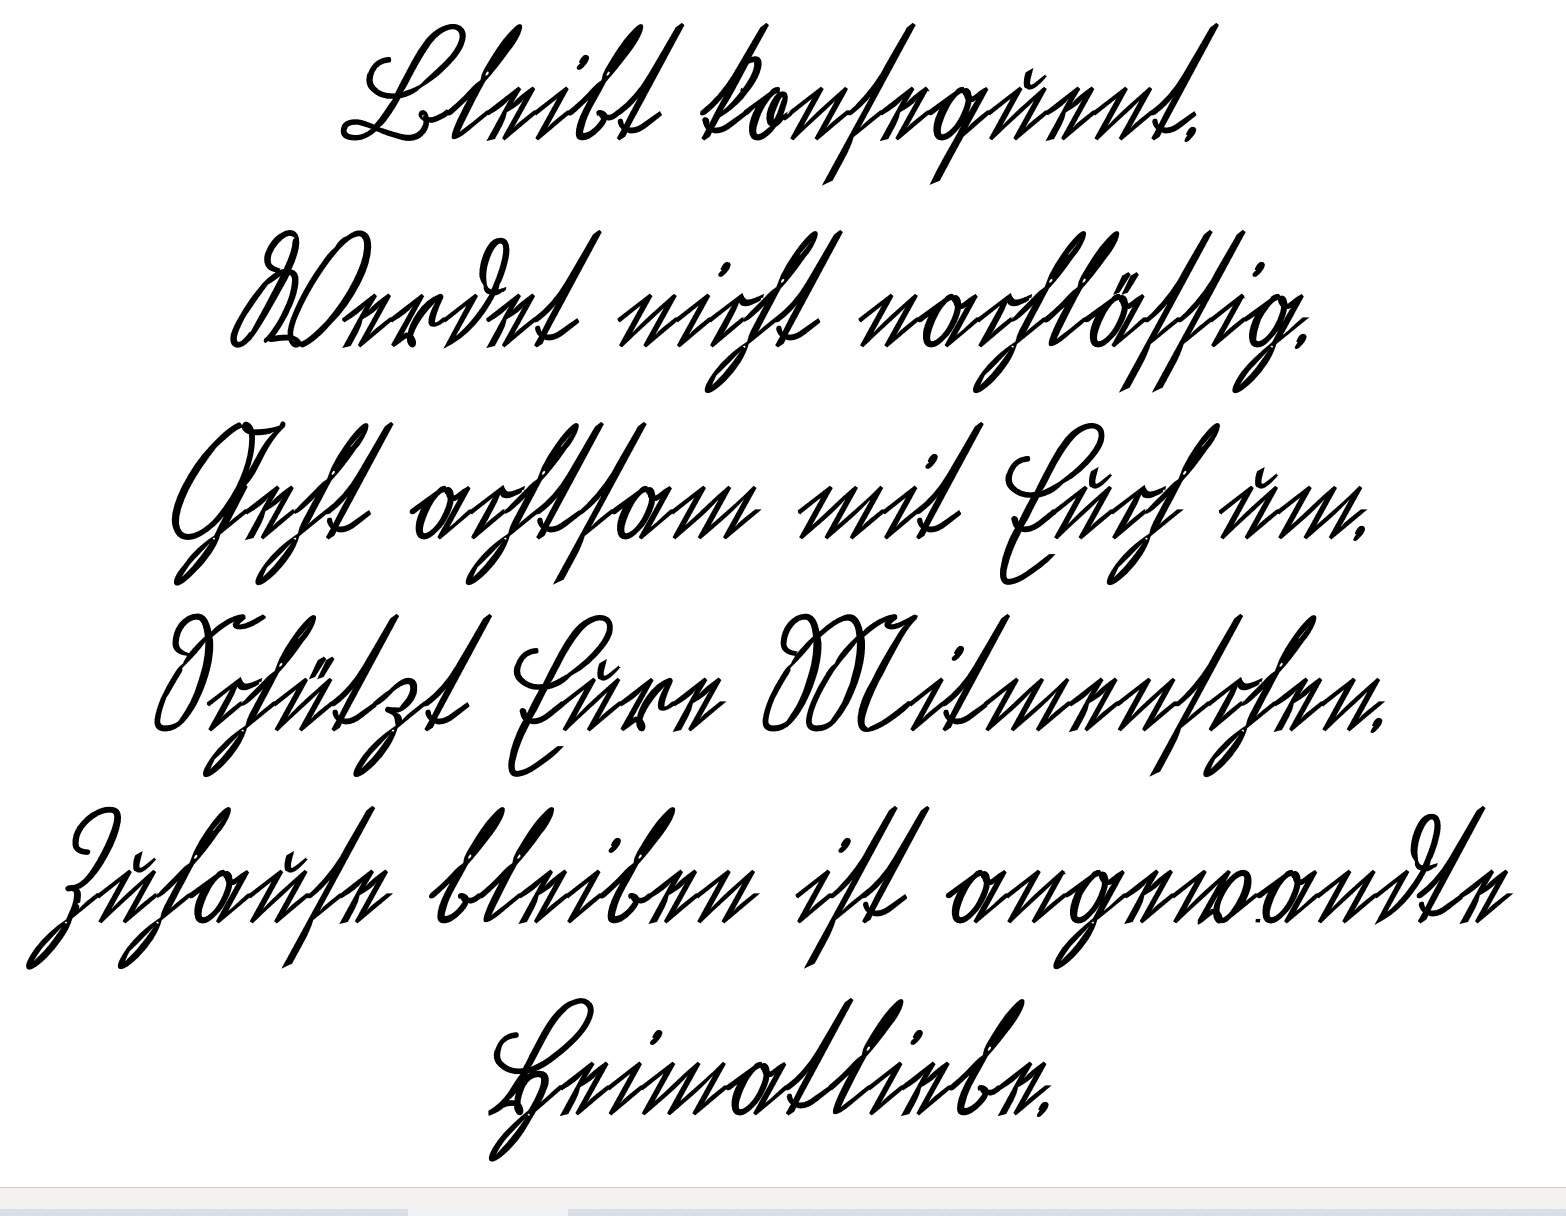 Bleibt konsequent.
Werdet nicht nachlässig.
Geht achtsam mit Euch um.
Schützt Eure Mitmenschen.
Zuhause bleiben ist angewandte
Heimatliebe.